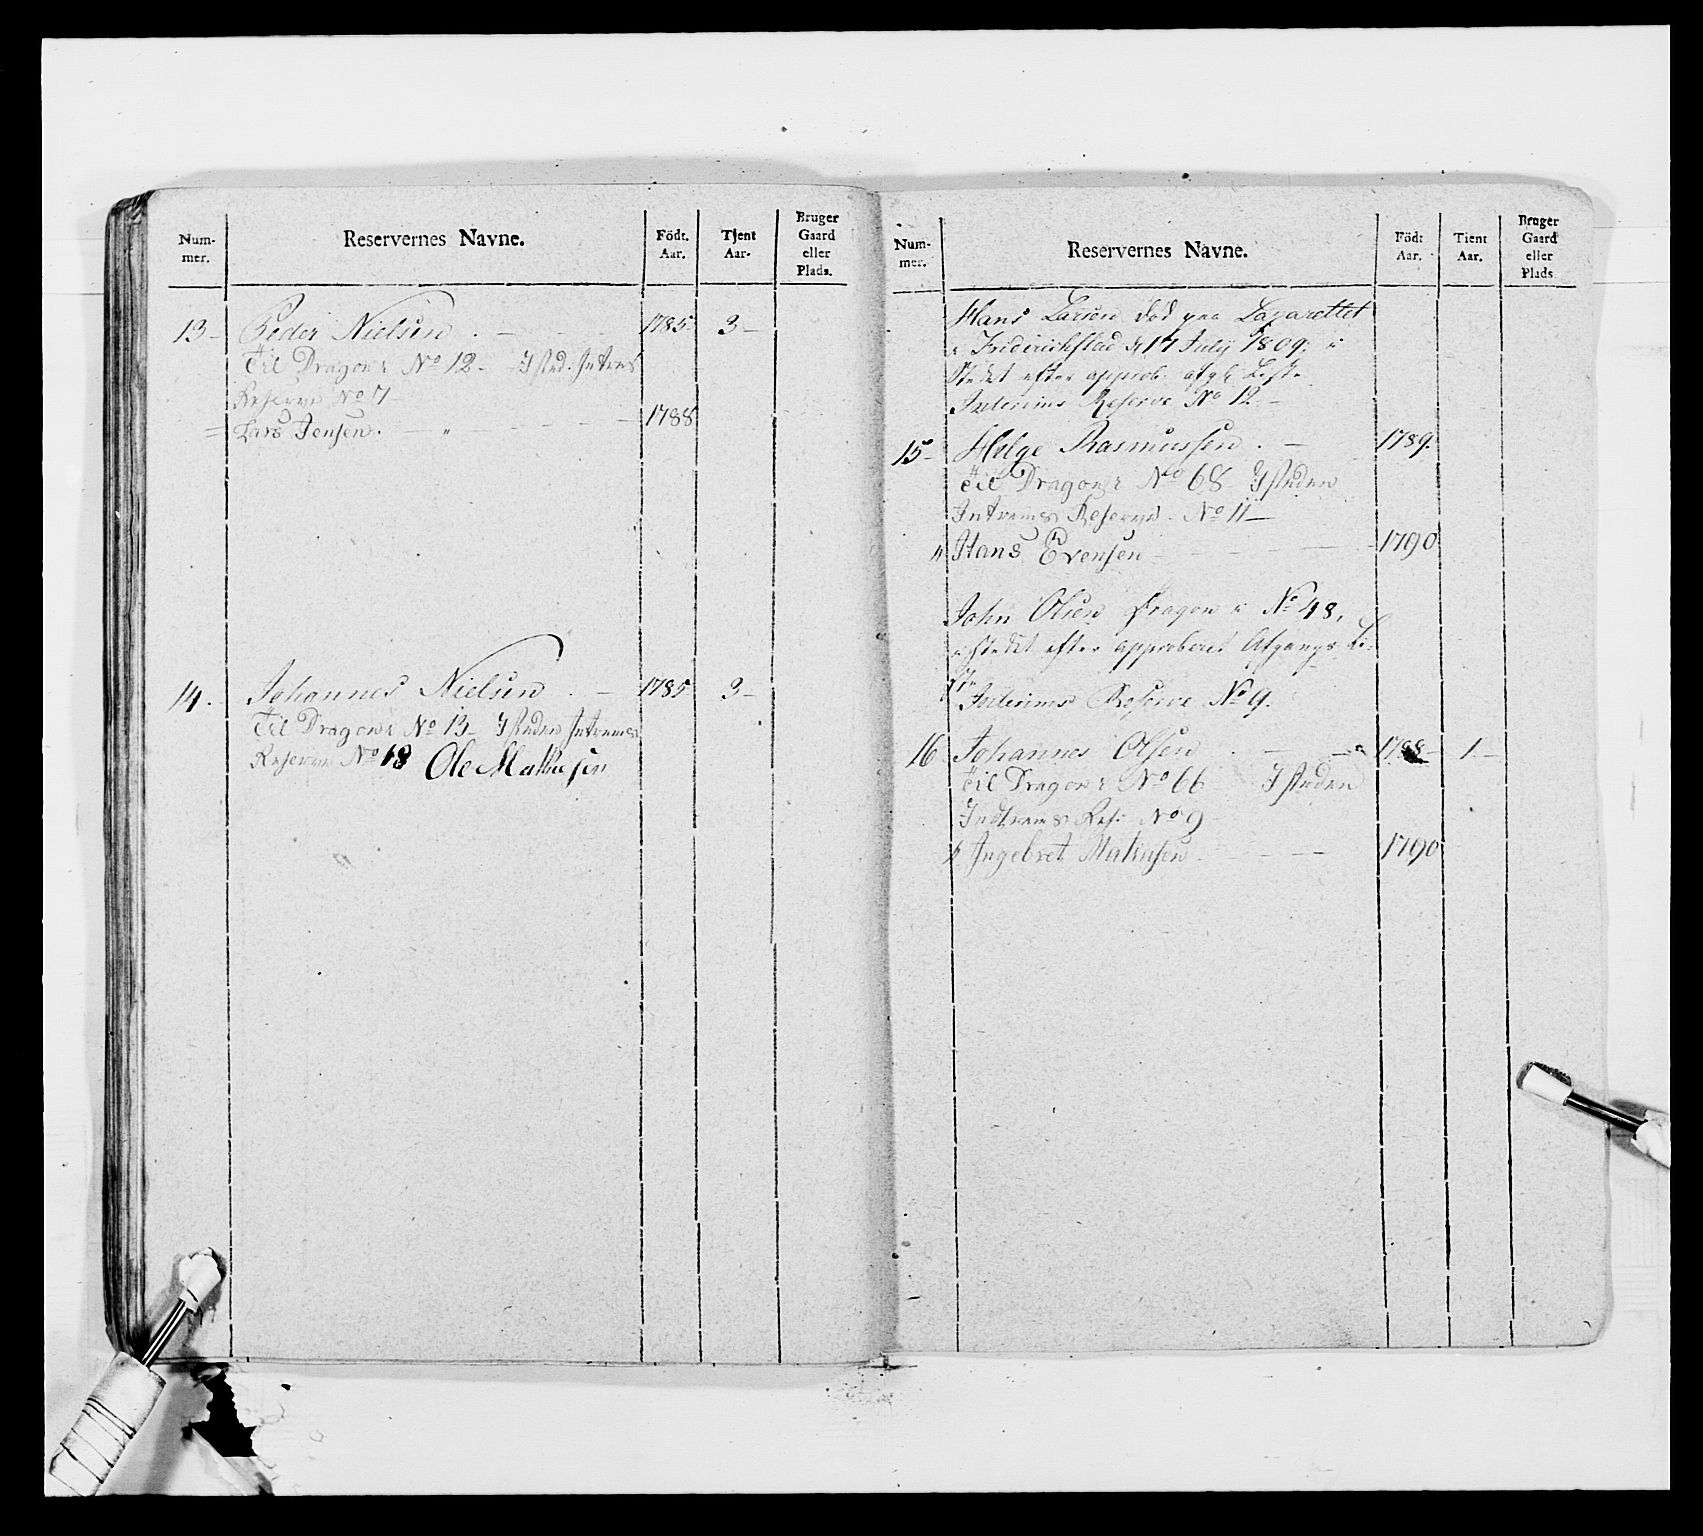 Num-
mer.
Reservernes Navne.
Födt.
Aar.
Tjent
Aar.
Bruger
Gaard
eller
Plads.
13 - Peder Nielsen . - 1785 3 -
Til Dragon i No 12 - I sted. Intrms
Reserve No 7
= Lars Jensen. - " - - - - 1788
14. Johannes Nielsen . - 1785 3 -
Til Dragon i No 13 - I steden Intrems
Reserve No 18 Ole Mathiesen
Num-
mer.
Reservernes Navne.
Födt
Aar.
Tient
Aar.
Bruger
Gaard
eller
Plads
Hans Larsen død paa Lazarettet
i Friderichstad d 17 July 1809. i
Stedet efter approb. afg. Liste
Interims Reserve No 12 -
15 - Helge Rasmussen . - 1789.
Til Dragon i No 68 I steden
Intrems Reserve. No 11 -
" Hans Evensen - - - - 1790
John Olsen Dragon i No 48,
i stedet efter approberet Afgangs Li-
ste Interims Reserve No 9.
16 Johannes Olsen . - - 1788 - 1 -
Til Dragon i No 66 I steden
Indtrems Res: No 9
" Ingebret Mathisen - - - 1790